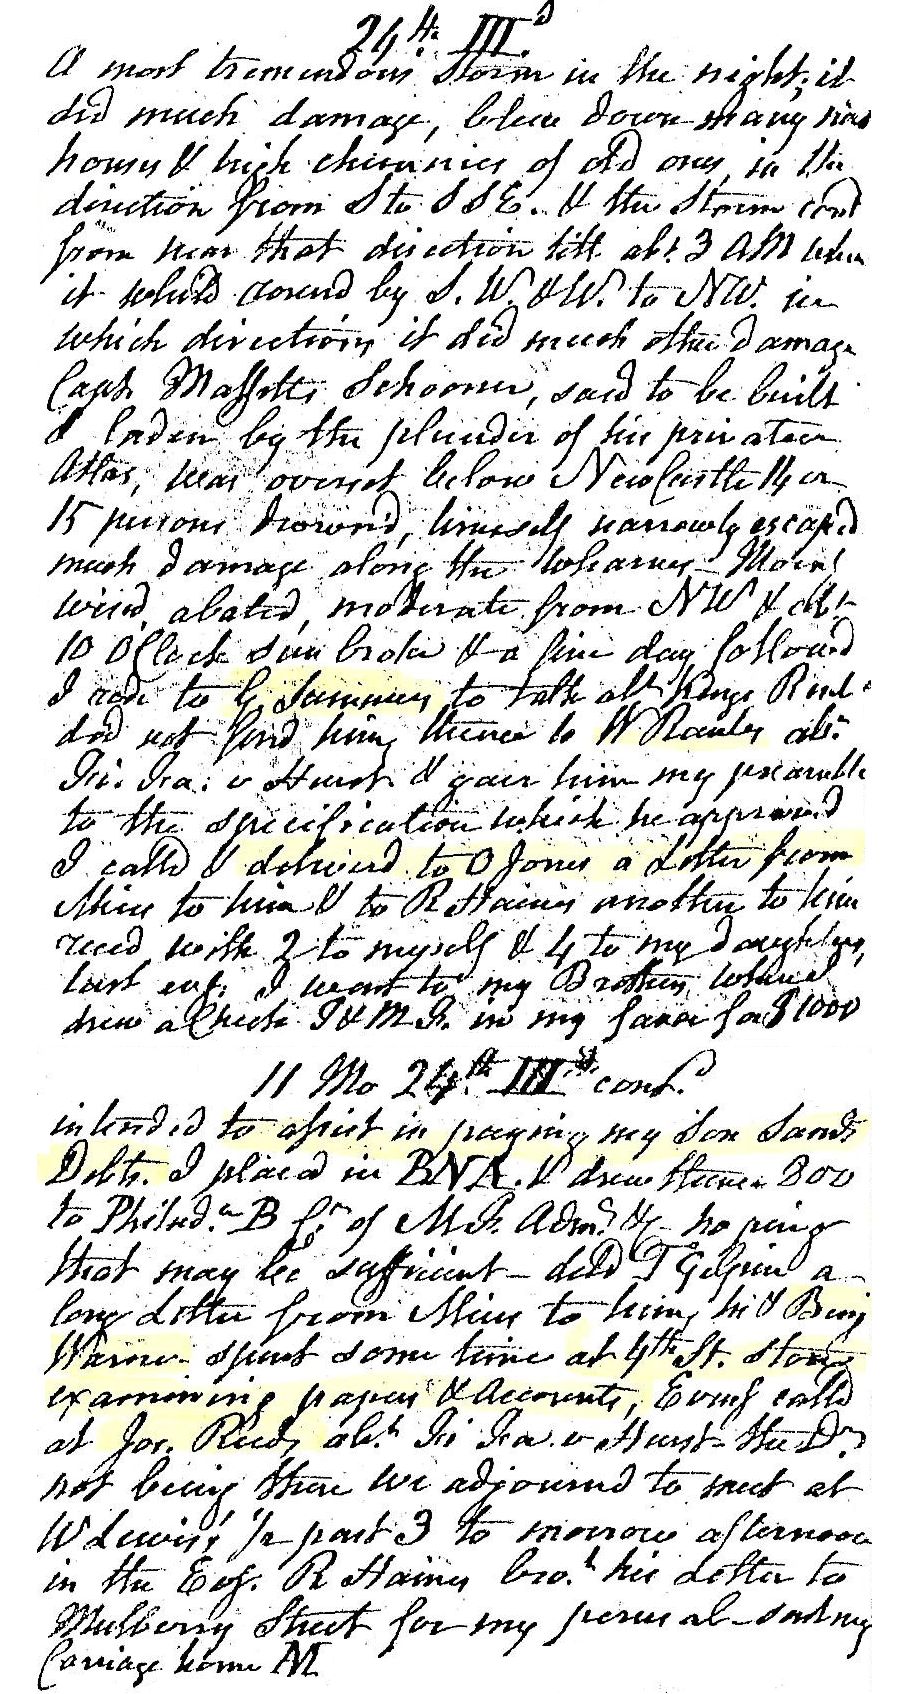 24th. IIId
A most tremendous Storm in the night, it
did much damage, blew down many new
houses & high chimnies of old ones, in the
direction from S to SSE. & the Storm cont
from near that direction till abt. 3 AM when
it whirld round by S. W. & W. to NW. in
which directions it did much other damage
Capt Maffetts Schooner, said to be built
& laden by the plunder of his privateer
Atlas, was overset below NewCastle 14 or
15 persons drown'd, himself narrowly escaped
much damage along the wharves - Morng
wind, abated, moderate from NW & abt
10 OClock sun broke & a fine day followd
I rode to G. Summers to talk abt Kings Road
did not find him, thence to W Rawles abt.
& gave him my preamble
to the specification which he approved
I calld & deliverd to O Jones a Letter from
Miers to him & to R Haines another to him
recd with 2 to myself & 4 to my daughters,
last evg. I went to my Brothers, where I
drew a Check J & M F. in my favor for $1000
11 Mo 24th. IIId. contd.
intended to assist in paying my Son Saml's
Debts. I placed in BNA. & drew thence 800
to Philada. B Cr. of M. F. Admr. &c - hoping
that may be sufficient - deld T Gilpin a
long Letter from Miers to him, he & Benj
Warner spent some time at 4th St. Store
examining papers & Accounts, Evng calld
at Jos. Reeds abt. the Dr.
not being there we adjournd to meet at
W Lewis's 1/2 past 3 to morrow afternoon
in the Evg. R Haines brot. his Letter to
Mulberry Street for my perusal - sent my
Carriage home M